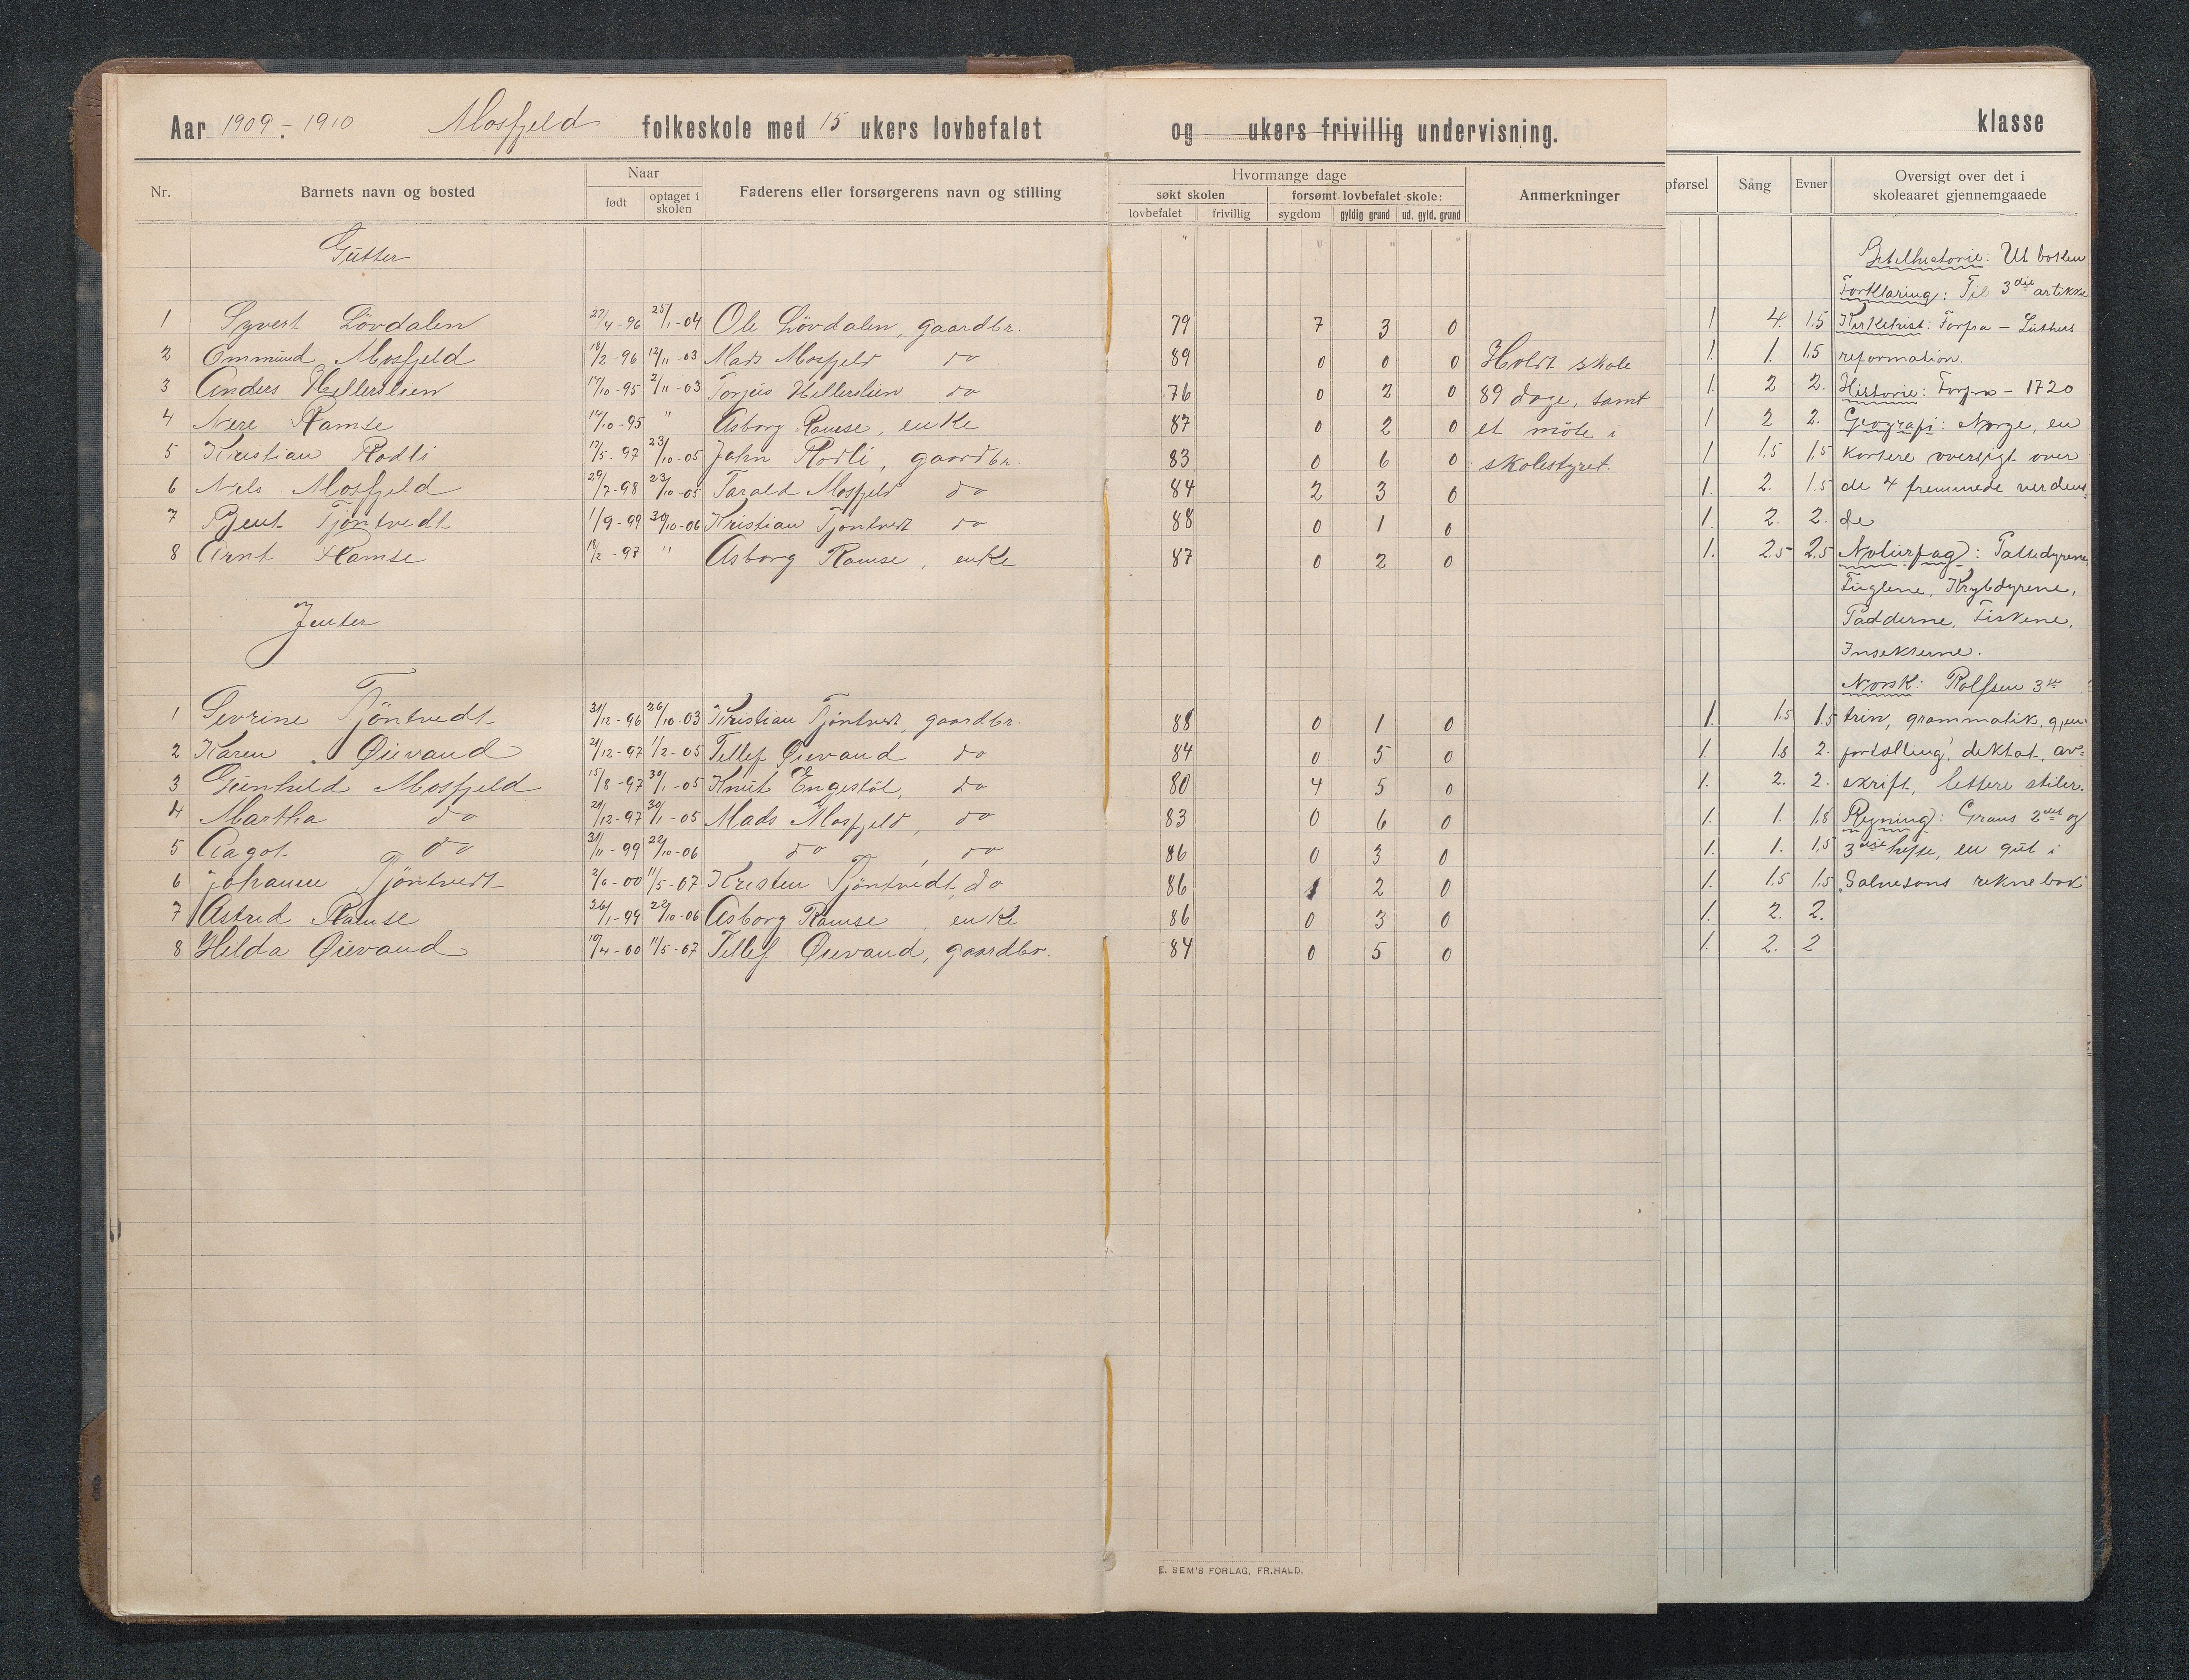 Aar 1909-1910 Mosfjeld folkeskole med 15 ukers lovbefalet og ukers frivillig undervisning. klasse
Nr. Barnets navn og bosted Naar født optaget i skolen Faderens eller forsørgerens navn og stilling
Hvormange dage
søkt skolen forsømt lovbefalet skole:
lovbefalet frivillig sygdom gyldig grund ud. gyld. grund
Anmerkninger
pførsel Sång Evner Oversigt over det i
skoleaaret gjennemgaaede
Gutter
1 Syvert Lövdalen 27/4-96 25/1-04 Ole Lövdalen, gaardbr. 79 7 3 0
2 Ommund Mosfjeld 18/2-96 12/11-03 Mads Mosfjeld do 89 0 0 0 Holdt skole
3 Anders Hellerslien 17/10-95 2/11-03 Torjus Hellerslien do 76 0 2 0 89 dage, samt
4 Nere Ramse 14/10-95 " Asborg Ramse, enke 87 0 2 0 et möte i
5 Kristian Rödli 17/5-97 23/10-05 John Rödli, gaardbr. 83 0 6 0 skolestyret.
6 Nils Mosfjeld 29/7-98 23/10-05 Tarald Mosfjeld do 84 2 3 0
7 Bent Tjöntvedt 1/9-99 30/10-06 Kristian Tjöntvedt do 88 0 1 0
8 Arnt Ramse 18/2-97 " Asborg Ramse, enke 87 0 2 0
Jenter
1 Sevrine Tjöntvedt 31/12-96 26/10-03 Kristian Tjöntvedt, gaardbr. 88 0 1 0
2 Karen Øievand 21/12-97 1/2-05 Tellef Øievand do 84 0 5 0
3 Gunhild Mosfjeld 15/8-97 30/1-05 Knut Engestöl, do 80 4 5 0
4 Martha do 21/12-97 30/1-05 Mads Mosfjeld, do 83 0 6 0
5 Aagot do 31/11-99 22/10-06 do, do 86 0 3 0
6 Johanne Tjöntvedt 2/6-00 11/5-07 Kristen Tjöntvedt, do 86 1 2 0
7 Astrid Ramse 26/1-99 22/10-06 Asborg Ramse, enke 86 0 3 0
8 Hilda Øievand 19/4-00 11/5-07 Tellef Øievand, gaardbr. 84 0 5 0
Bibelhistorie: Ut boken
Forklaring: Til 3die artikke
1 4. 1.5 Kirkehist: Forfra - Luthers
1. 1. 1.5 reformation.
1. 2 2. Historie: Forfra - 1720
1 2 2. Geografi: Norge, en
1 1.5 1.5 kortere oversigt over
1. 2. 1.5 de 4 fremmede verdens-
1. 2. 2. de
1. 2.5 2.5 Naturfag: Pattedyrene,
Fuglene, Krybdyrene,
Padderne, Fiskene,
Insekterne.
Norsk: Rolfsen 3die
1. 1.5 1.5 trin, grammatik, gjen-
1. 1.8 2. fortælling, diktat, av-
1. 2. 2. skrift, lettere stiler.
1. 1. 1.8 Regning: Grans 2det og
1. 1. 1.5 3die hefte, en gut i
1. 1.5 1.5 Salvesens reknebok
1. 2. 2.
1. 2. 2
E. SEM'S FORLAG, FR.HALD.